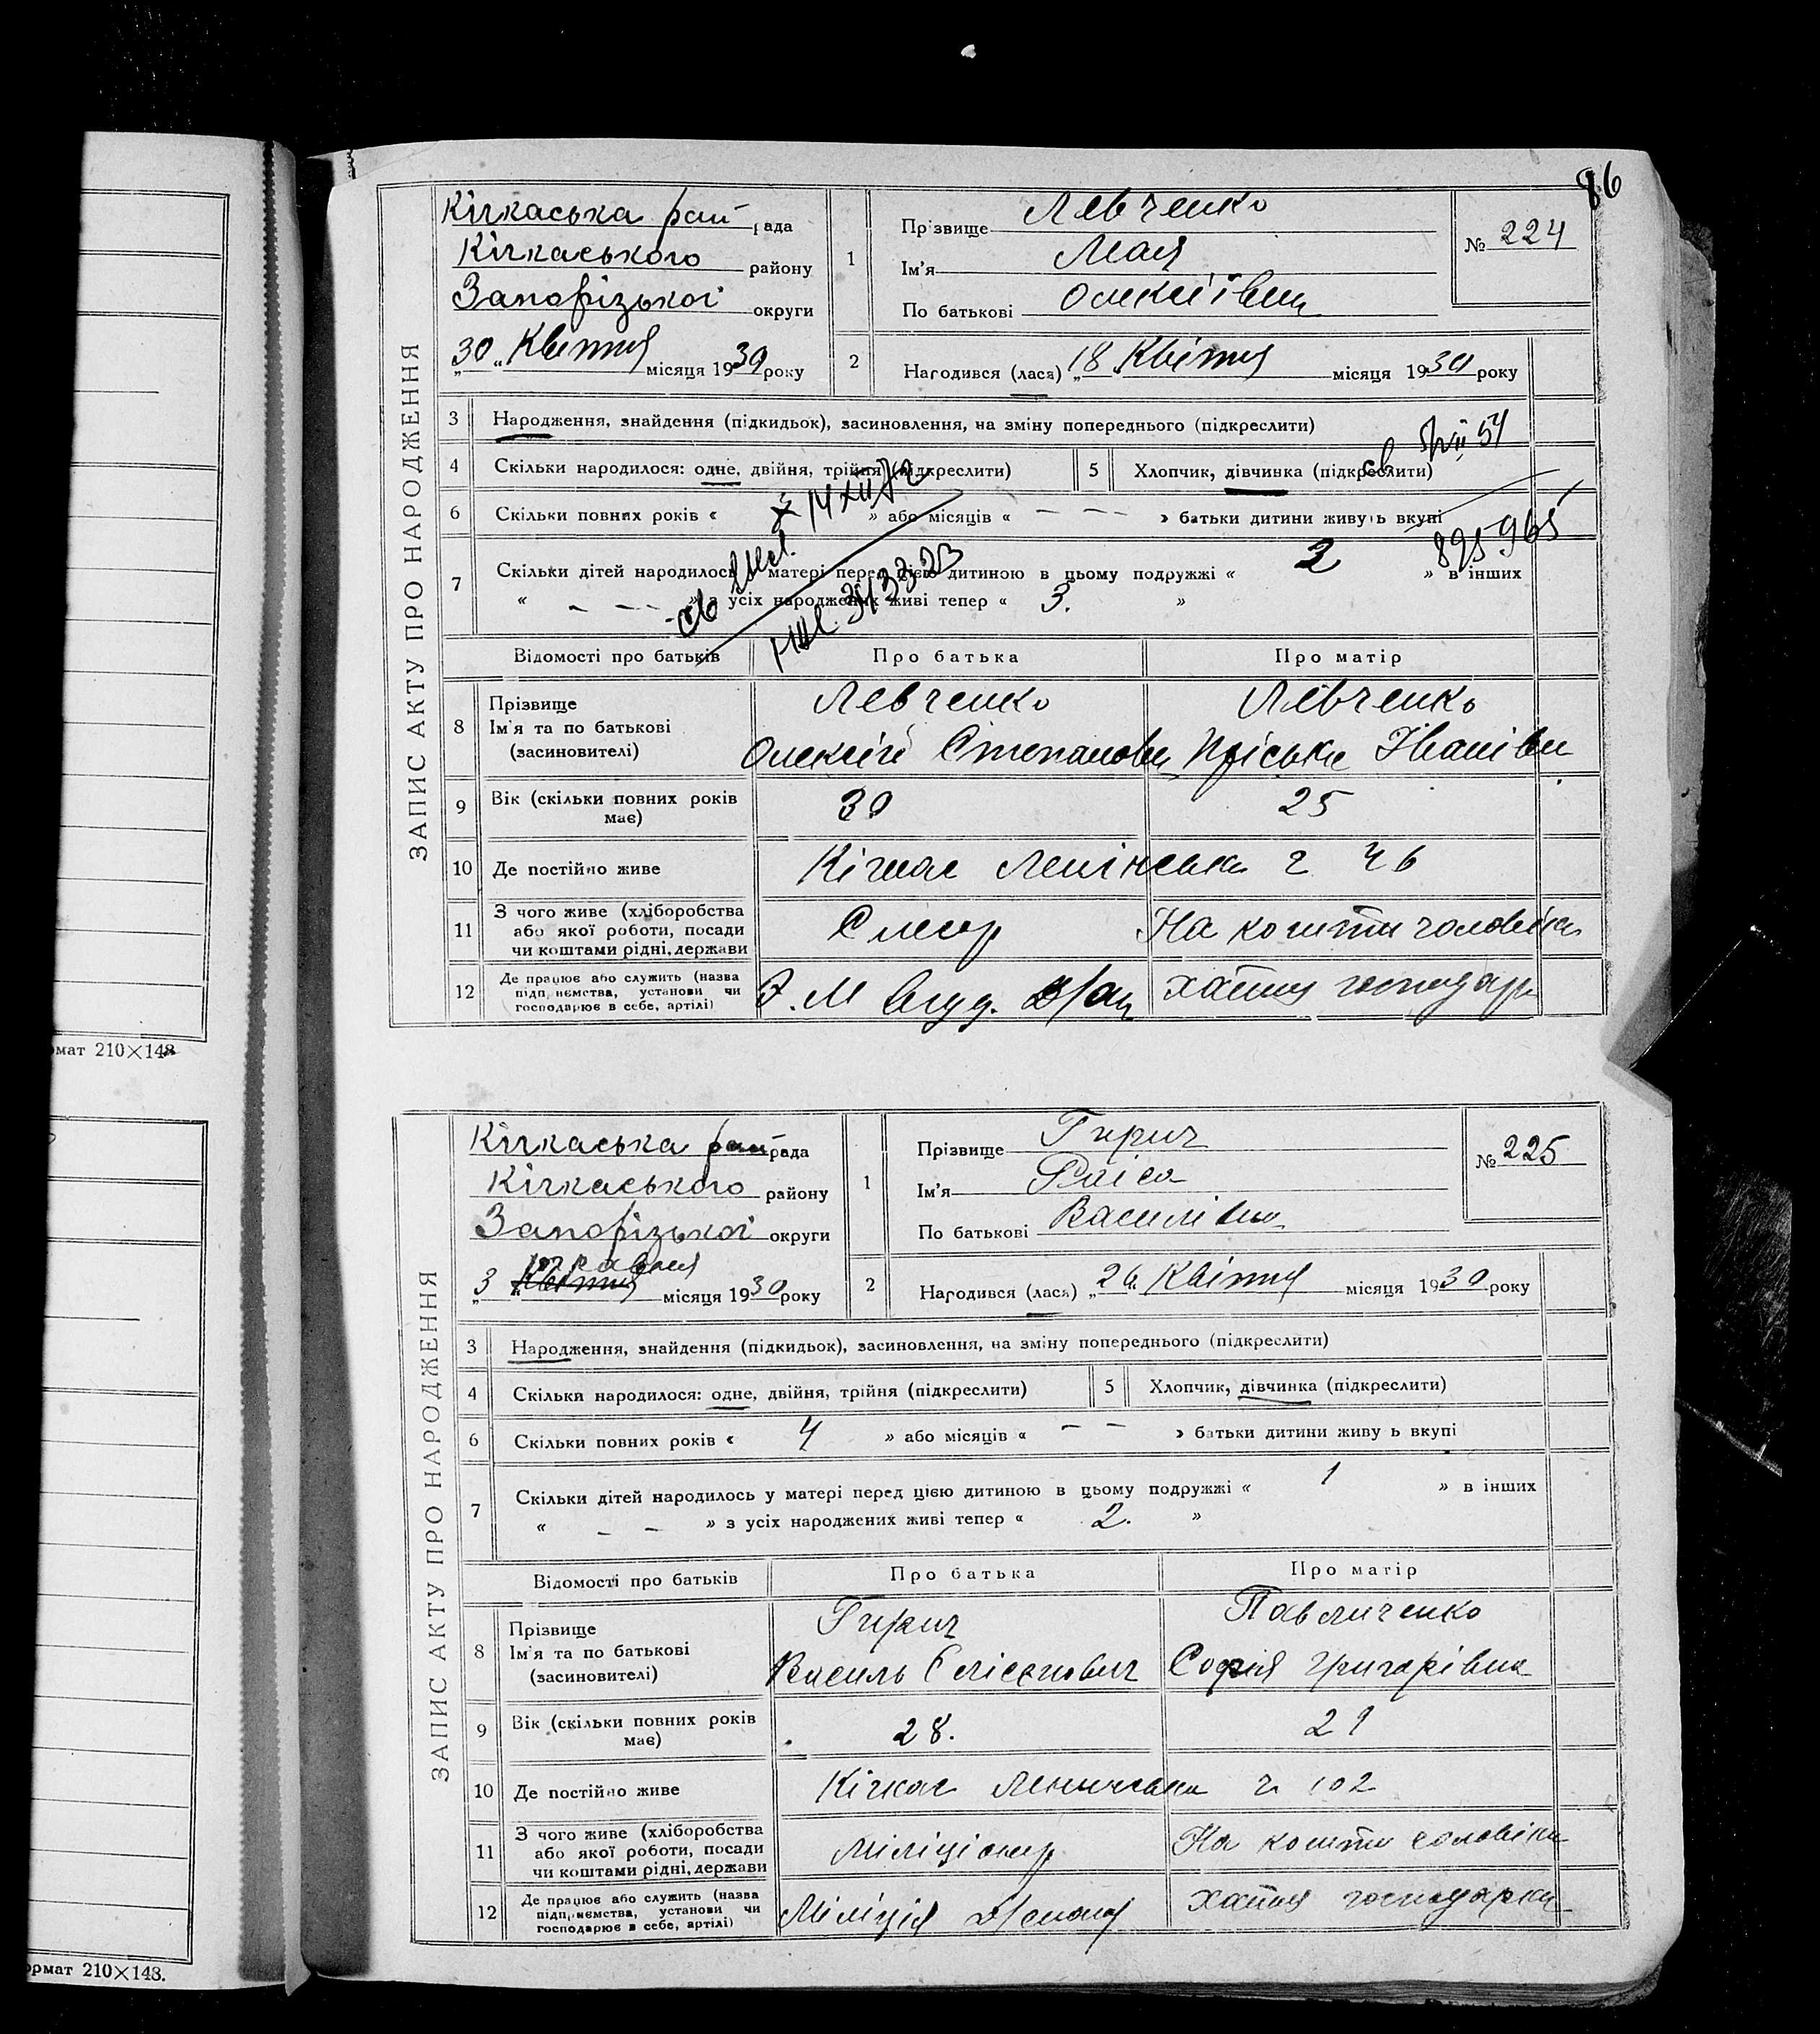 86
ЗАПИС АКТУ ПРО НАРОДЖЕННЯ
Кічкаська рай рада
Кічкаського району
Запорізької округи
„30“ Квітня місяця 1930 року
1
Прізвище Левченко
Ім'я Мая
По батькові Олексіївна
№ 224
2
Народився (лася) „18“ Квітня місяця 1930 року
3 Народження, знайдення (підкидьок), засиновлення, на зміну попереднього (підкреслити)
4 Скільки народилося: одне, двійня, трійня (підкреслити) 5 Хлопчик, дівчинка (підкреслити)
6 Скільки повних років « 7 » або місяців « — — — » батьки дитини живуть вкупі
895965
7 Скільки дітей народилось у матері перед цією дитиною в цьому подружжі « 2 » в інших
« — — — » з усіх народжених живі тепер « 3. »
Відомості про батьків Про батька Про матір
8 Прізвище Левченко Левченко
Ім'я та по батькові Олексій Степанови Пріська Іванівн
(засиновителі)
9 Вік (скільки повних років має) 30 25
10 Де постійно живе Кічкас Ленінська 2 46
11 З чого живе (хліборобства або якої роботи, посади чи коштами рідні, держави Слюсар На кошти чоловіка
12 Де працює або служить (назва підприємства, установи чи господарює в себе, артілі) хатня господар
мат 210×148
ЗАПИС АКТУ ПРО НАРОДЖЕННЯ
Кічкаська рай рада
Кічкаського району
Запорізької округи
травня
„3“ Квітня місяця 1930 року
1
Прізвище Гирич
Ім'я Раіса
По батькові Василівна
№ 225
2
Народився (лася) „26“ Квітня місяця 1930 року
3 Народження, знайдення (підкидьок), засиновлення, на зміну попереднього (підкреслити)
4 Скільки народилося: одне, двійня, трійня (підкреслити) 5 Хлопчик, дівчинка (підкреслити)
6 Скільки повних років « 4 » або місяців « — — » батьки дитини живу ь вкупі
7 Скільки дітей народилось у матері перед цією дитиною в цьому подружжі « 1 » в інших
« — — » з усіх народжених живі тепер « 2. »
Відомості про батьків Про батька Про матір
8 Прізвище Гирич Павличенко
Ім'я та по батькові Василь Софія Григорівна
(засиновителі)
9 Вік (скільки повних років має) 28. 21
10 Де постійно живе Кічкас Ленинська 2 102
11 З чого живе (хліборобства або якої роботи, посади чи коштами рідні, держави Міліціонер На кошти чоловіка
12 Де працює або служить (назва підприємства, установи чи господарює в себе, артілі) Міліція хатня господарка
ормат 210×148.